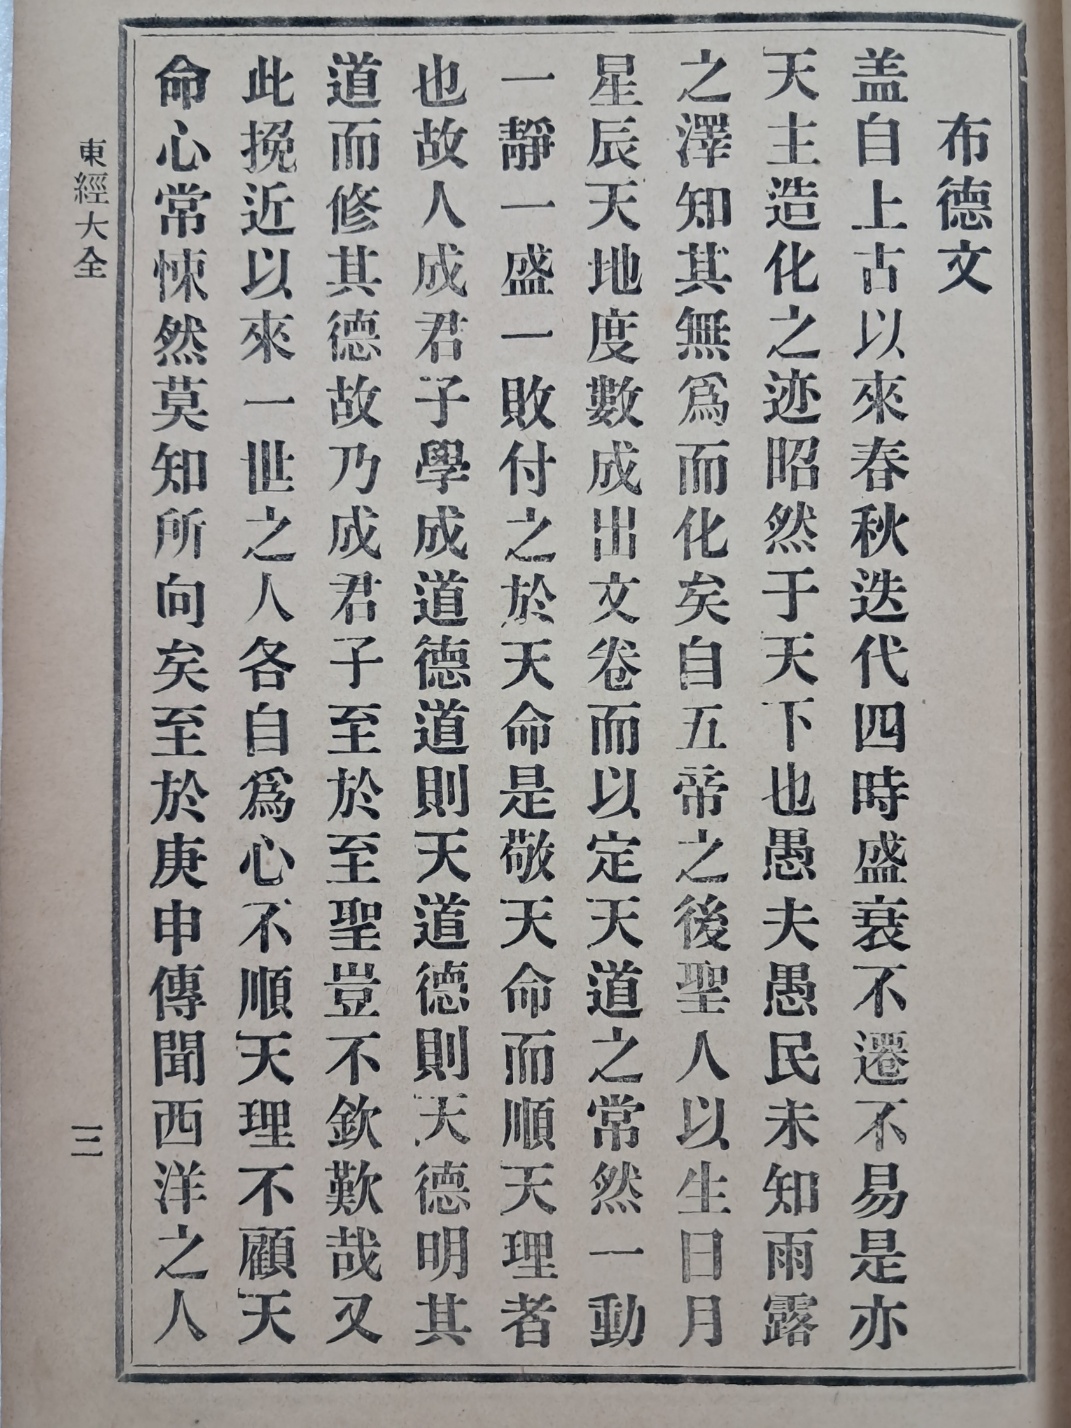 布德文
盖自上古以來春秋迭代四時盛衰不遷不易是亦
天主造化之迹昭然于天下也愚夫愚民未知雨露
之澤知其無爲而化矣自五帝之後聖人以生日月
星辰天地度數成出文卷而以定天道之常然一動
一靜一盛一敗付之於天命是敬天命而順天理者
也故人成君子學成道德道則天道德則天德明其
道而修其德故乃成君子至於至聖豈不欽歎哉又
此挽近以來一世之人各自爲心不順天理不顧天
命心常悚然莫知所向矣至於庚申傳聞西洋之人
東經大全
三